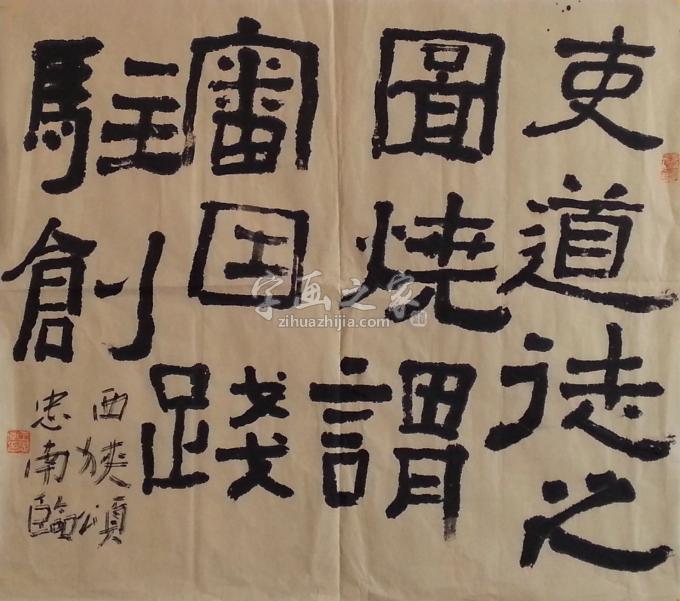 吏道徒之
圖燒謂
審因踐
駐創
西狹頌
忠南臨
字画之家
zihuazhijia.com